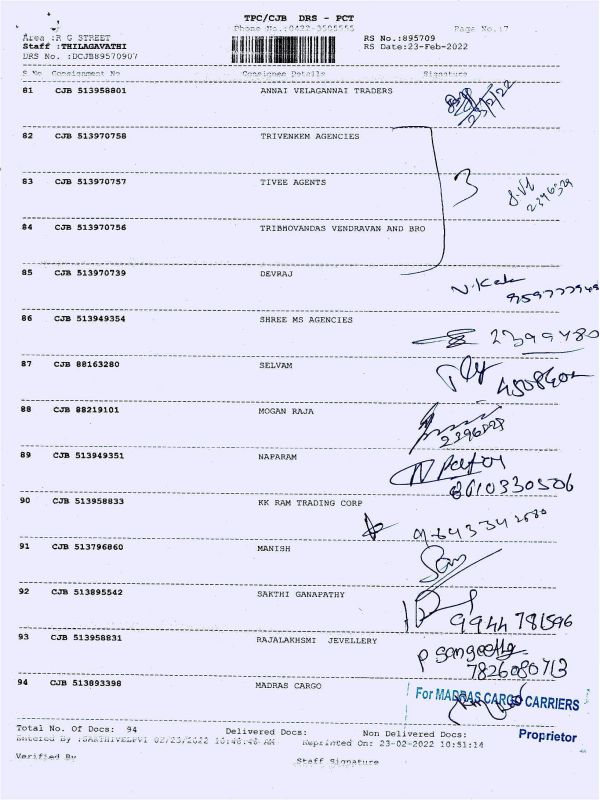 TPC/CJB DRS - PCT
Phone No.:0422-3505555
Page No.:7
Area :R G STREET
RS No.:895709
Staff :THILAGAVATHI
RS Date:23-Feb-2022
DRS No. :DCJB89570907
S No Consignment No Consignee Details Signature
81 CJB 513958801 ANNAI VELAGANNAI TRADERS
23/2/22
82 CJB 513970758 TRIVENKEM AGENCIES
83 CJB 513970757 TIVEE AGENTS
3
84 CJB 513970756 TRIBHOVANDAS VENDRAVAN AND BRO
85 CJB 513970739 DEVRAJ
86 CJB 513949354 SHREE MS AGENCIES
2399480
87 CJB 88163280 SELVAM
88 CJB 88219101 MOGAN RAJA
2396828
89 CJB 513949351 NAPARAM
8610330506
90 CJB 513958833 KK RAM TRADING CORP
91 CJB 513796860 MANISH
92 CJB 513895542 SAKTHI GANAPATHY
9944 781596
93 CJB 513958831 RAJALAKHSMI JEVELLERY
P Sangeetha
7826080713
94 CJB 513893398 MADRAS CARGO
For MADRAS CARGO CARRIERS
Proprietor
Total No. Of Docs: 94 Delivered Docs: Non Delivered Docs:
Entered By :SAKTHIVELPVI 02/23/2022 10:48:46 AM Reprinted On: 23-02-2022 10:51:14
Verified By Staff Signature